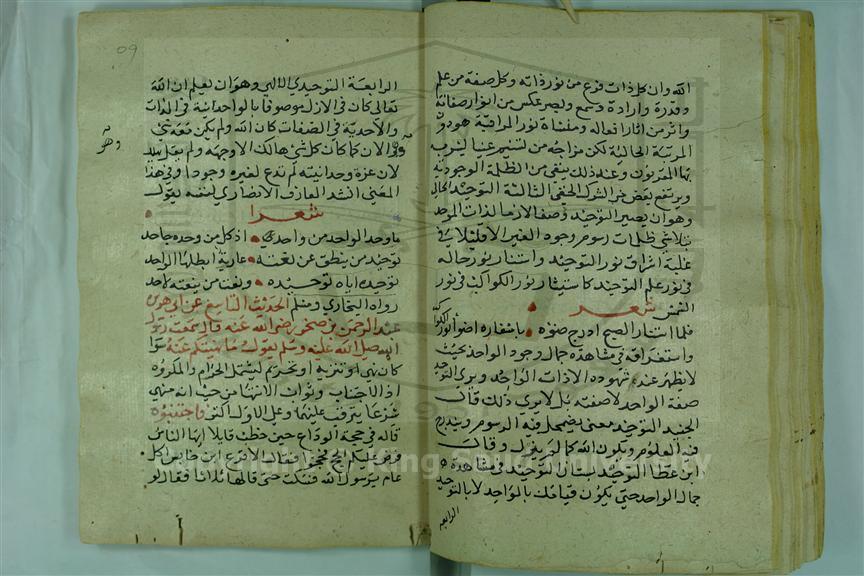 الله وان كل ذات فرع من نور ذاته وكل صفة من علم
وقدرة وارادة وسمع وبصر عكس من انوار صفاته
واثر من اثار افعاله ومنشاة نور المراقبة هو دون
المرتبة الحالية لكن مزاجه من تسنيم عينا يشرب
بها المقربون وعند ذلك ينفى من الظلمة الوجودية
ويرتفع بعض من الشرك الخفي الثالثة التوحيد الحالي
وهو ان يصير التوحيد وصفا لازما لذات الموحد
تتلاشى ظلمات رسوم وجوه الغير الا قليلا في
غلبة اشراق نور التوحيد واستنار نور حاله
في نور علم التوحيد كاستتار نور الكواكب في نور
الشمس شعر
فلما استنار الصبح ادرج ضوءه باسفاره اضوأ نور الكواكب
واستغراقه في مشاهدة جمال وجود الواحد بحيث
لا يظهر عند شهوده الا ذات الواحد ويرى التوحيد
صفة الواحد لا صفته بل لا يرى ذلك قال
الجنيد التوحيد معنى يضمحل فيه الرسوم ويندرج
فيه العلوم ويكون الله كما لم يزل وقال
ابن عطا التوحيد نسيان التوحيد في مشاهدة
جمال الواحد حتى يكون قيامك بالواحد لا بالتوحيد
الرابعة
09
الرابعة التوحيدي الالهي وهو ان يعلم ان الله
تعالى كان في الازل موصوفا بالواحدانية في الذات
والاحدية في الصفات كان الله ولم يكن معه شي
وهو الان كما كان كل شي هالك الا وجهه ولم يقل يهلك
لان عزة وحدانيته لم تدع لغيره وجودا وفي هذا
المعنى انشد العارف الانصاري لنفسه يقول
شعرا
ما وحد الواحد من واحد اذ كل من وحده جاحد
توحيد من ينطق عن نعته عارية ابطلها الواحد
توحيده اياه توحيده ونعت من ينعته لاحد
رواه البخاري ومسلم الحديث التاسع عن ابي هريرة
عبد الرحمن بن صخر رضي الله عنه قال سمعت رسول
الله صلى الله عليه وسلم يقول ما نهيتكم عنه سوا
كان نهي تنزيه او تحريم ليشمل الحرام والمكروه
اذ الاجتناب وثواب الانتها من حيث انه منهي
شرعا يترتب عليهما وعلى الاول اكثر فاجتنبوه
قاله في حجة الوداع حين خطب قايلا ايها الناس
فرض عليكم الحج فحجوا فقال الاقرع ابن حابس اكل
عام يرسول الله فسكت حتى قالها ثلاثا فقال لو
وهو